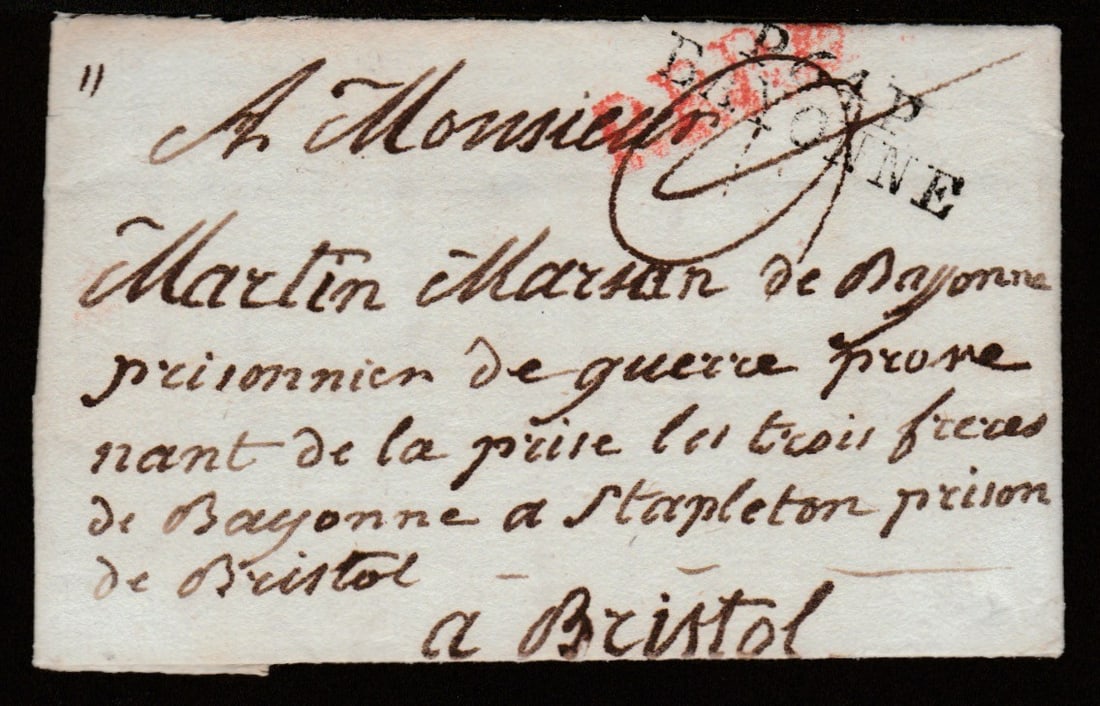 "
P64P
BAYONNE
A Monsieur
Martin Marsan de Bayonne
prisonnier de guerre prove
nant de la prise les trois freres
de Bayonne a Stapleton prison
de Bristol
a Bristol